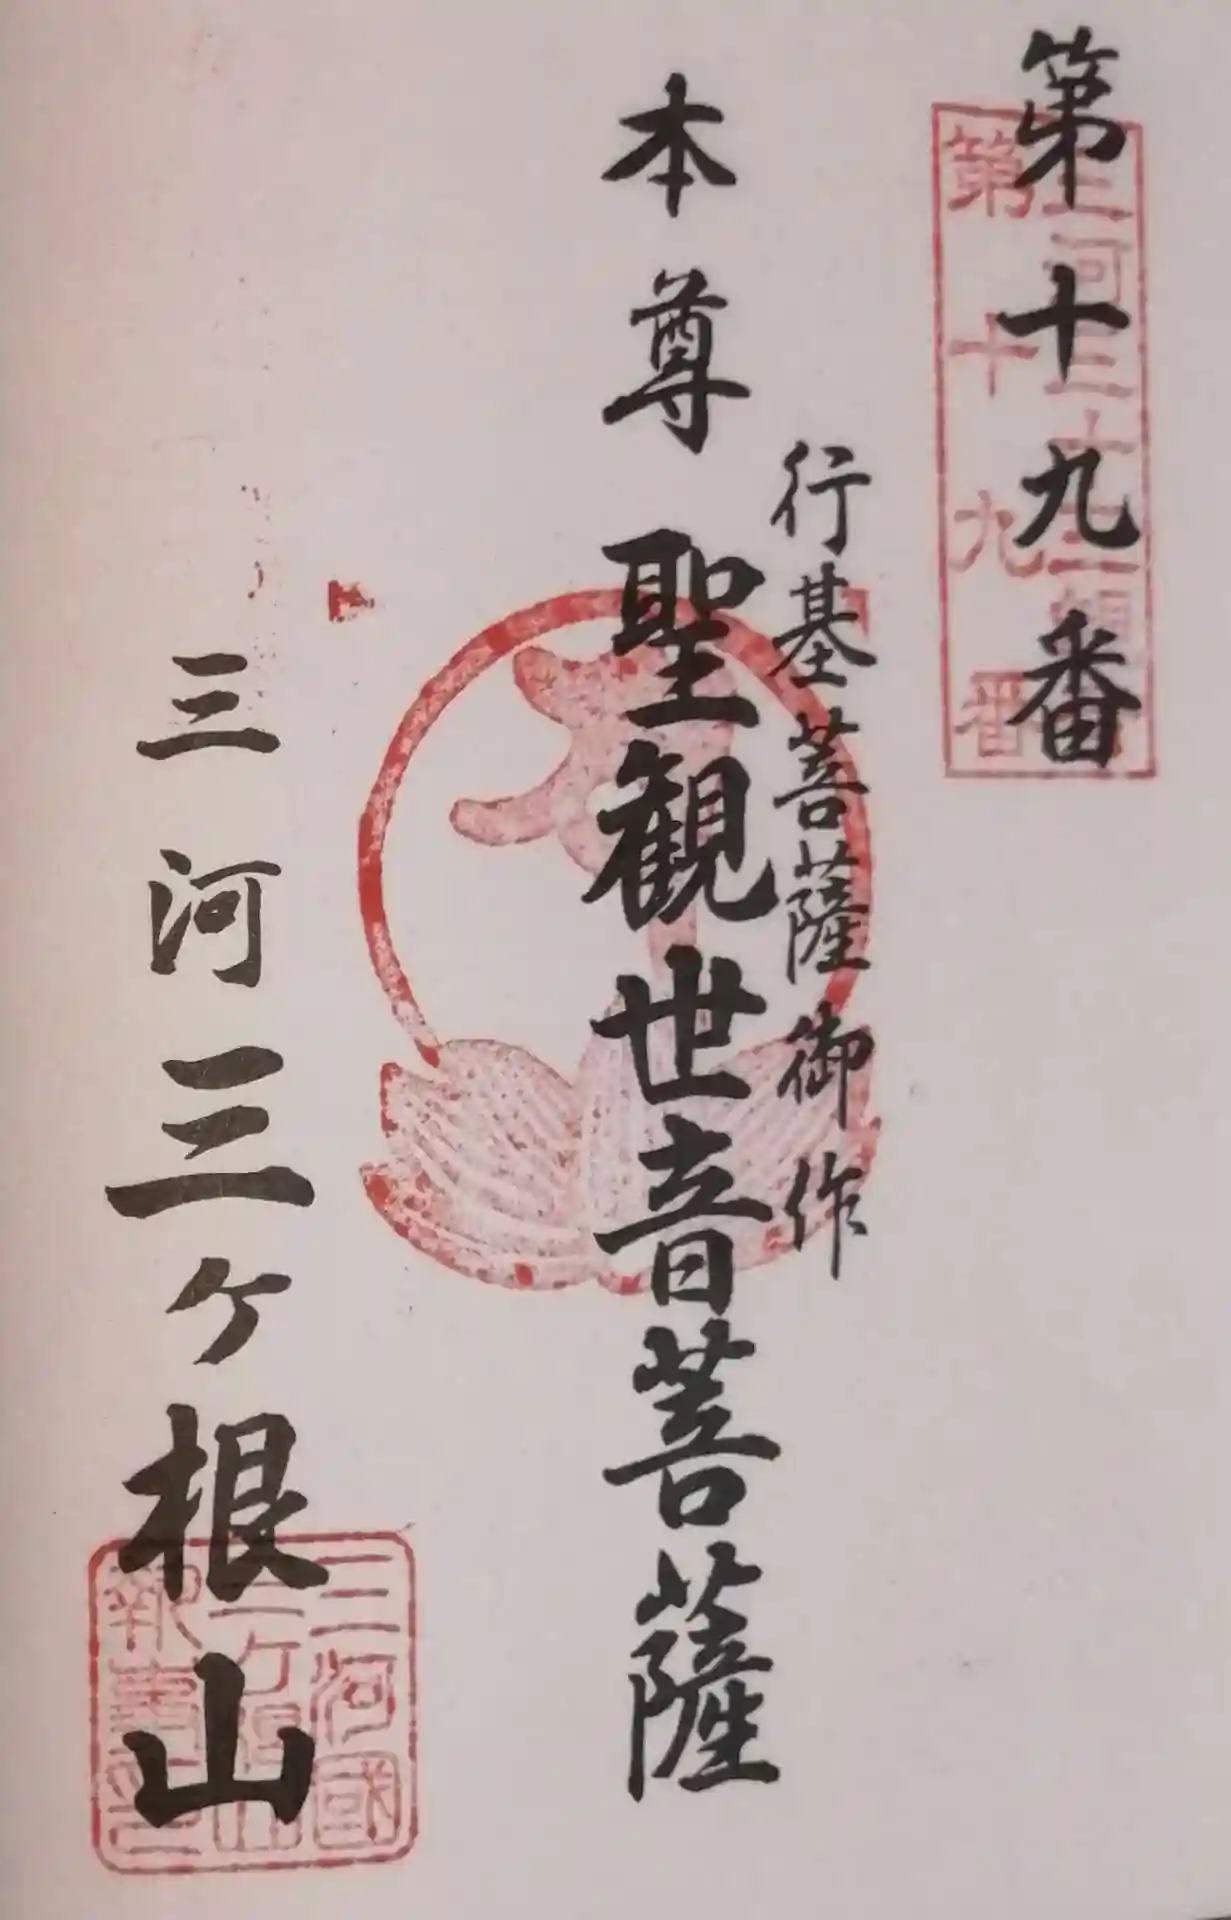 第十九番
三河三十三観
第十九番
行基菩薩御作
本尊 聖観世音菩薩
三河三ヶ根山
三河國
三ヶ根山